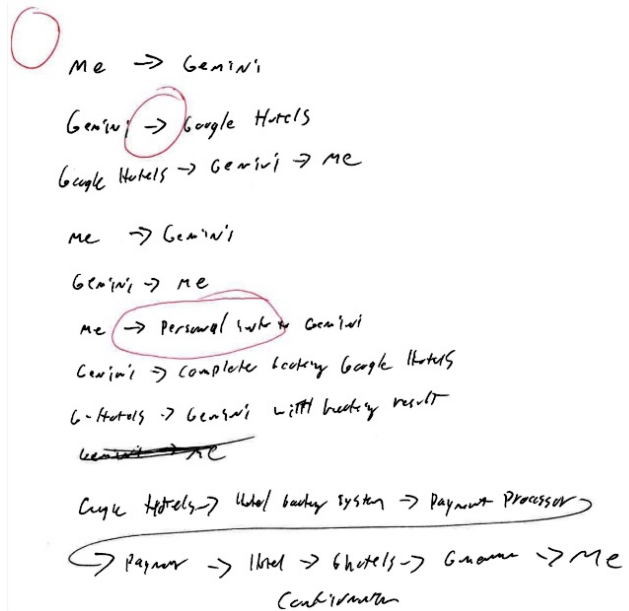 Me -> Gemini
Gemini -> Google Hotels
Google Hotels -> Gemini -> Me
Me -> Gemini
Gemini -> Me
Me -> Personal to Gemini
Gemini -> complete booking Google Hotels
G-Hotels -> Gemini with booking result
Gemini -> Me
Google Hotels -> Hotel booking system -> Payment Processor
-> Payment -> Hotel -> Ghotels -> -> Me
Confirmation